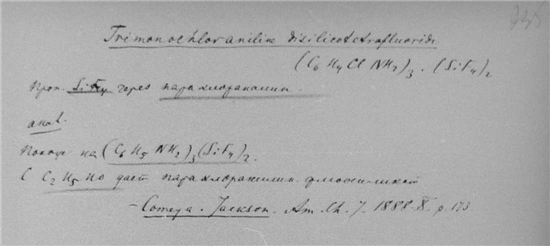 235
Trimonochloranilin disilicotetrafluorid
(C6 H4 Cl NH2)3 . (SiF4)2
Проп. SiF4 через парахлоранилин.
анал.
Похож на (C6 H5 NH2)3 (SiF4)2.
С C2H5 HO дает парахлоранилин
– Comey a. Jackson. Am. Ch. J. 1888. X. p. 173.